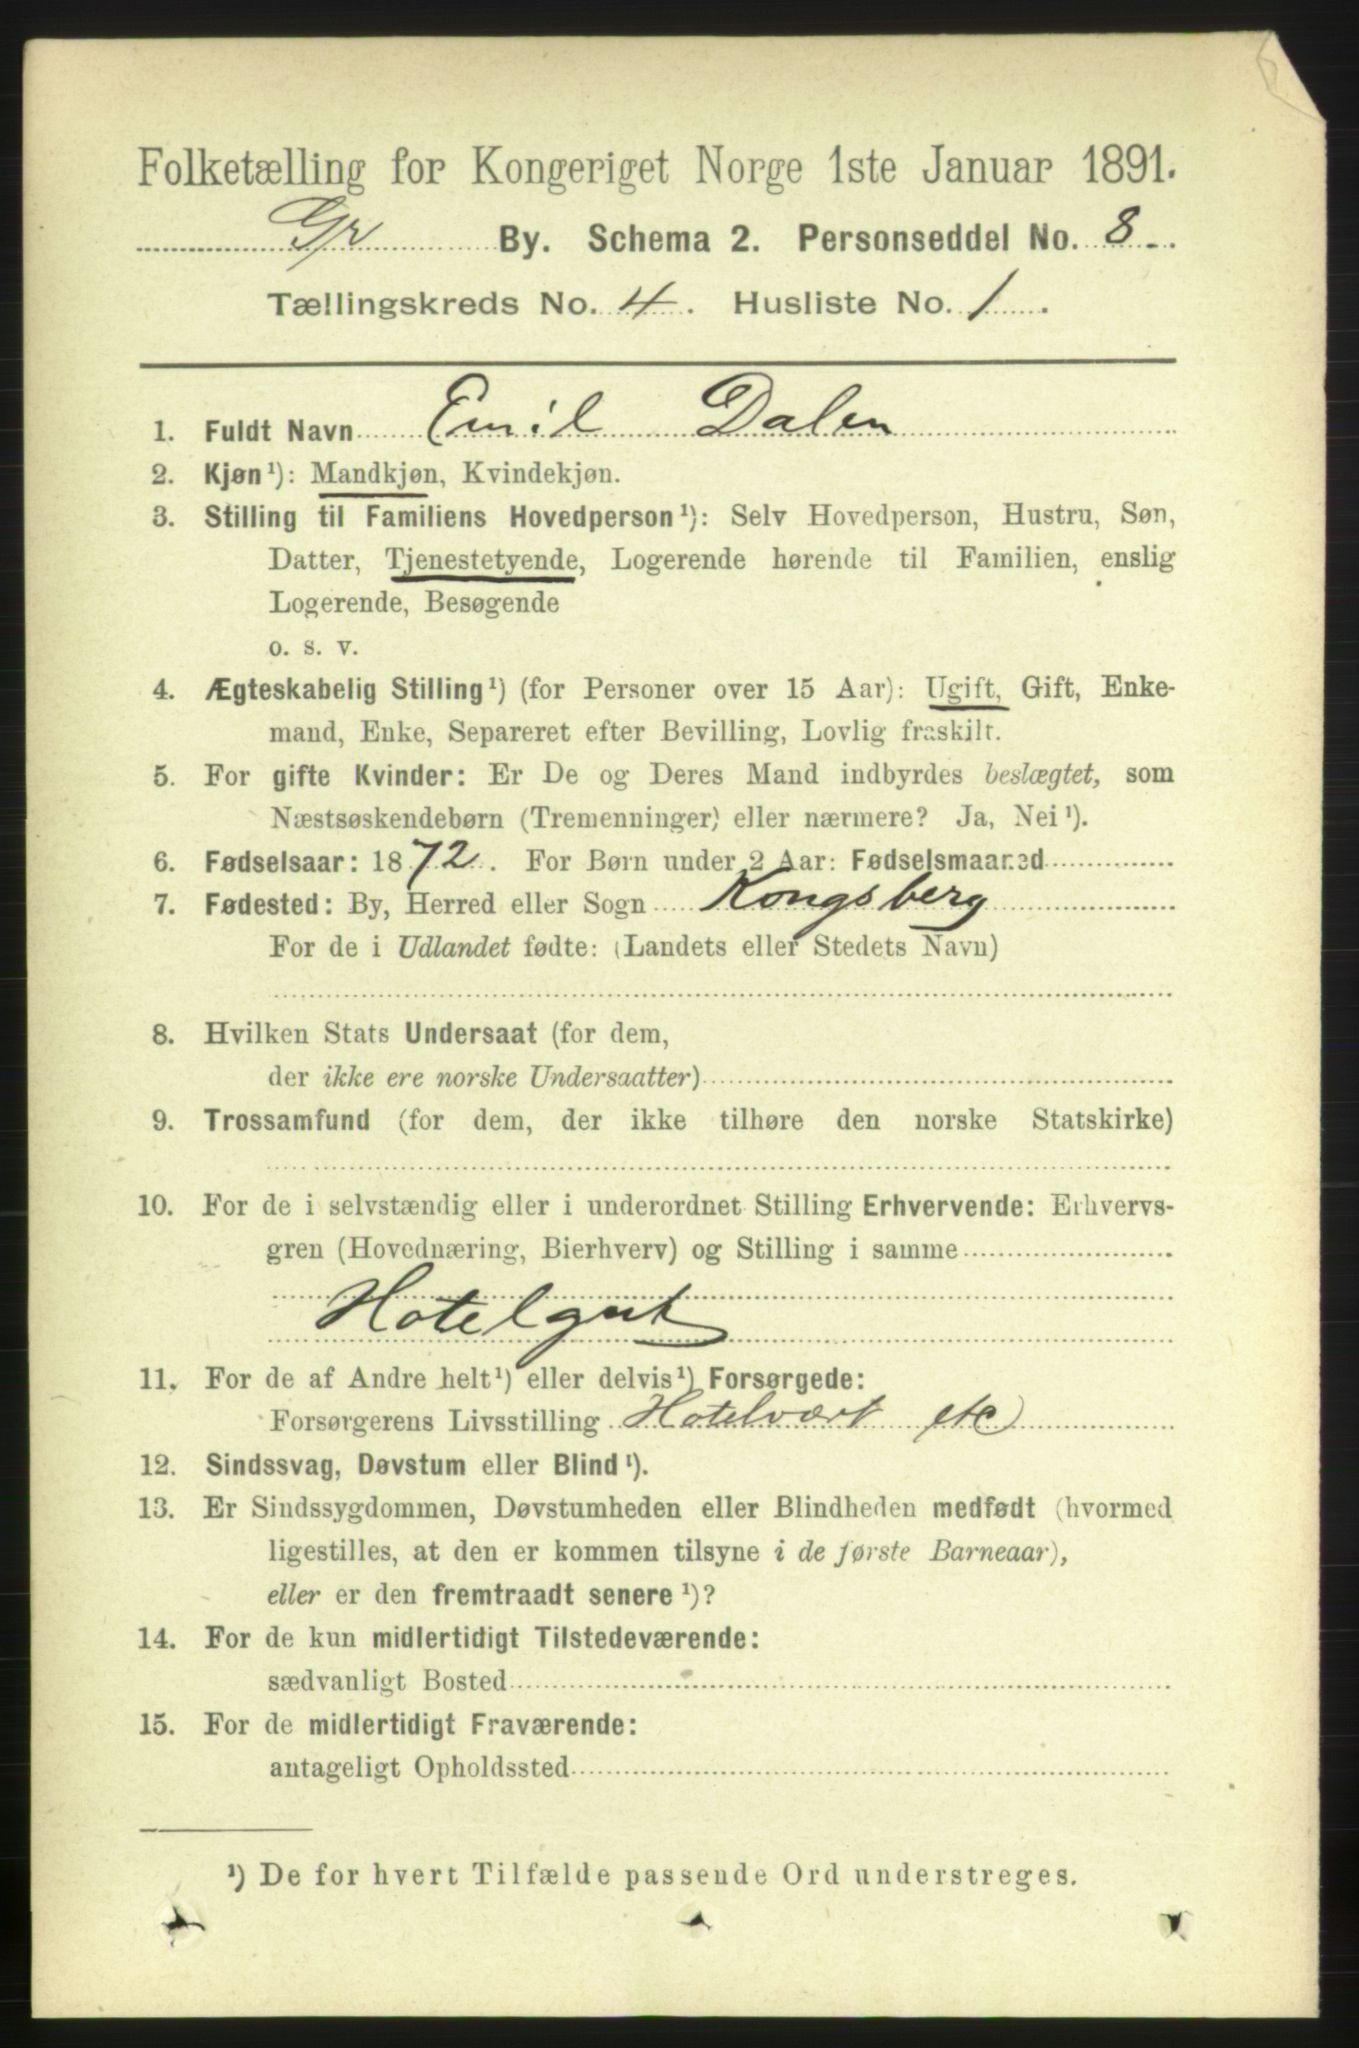 Folketælling for Kongeriget Norge 1ste Januar 1891.
Gr By. Schema 2. Personseddel No. 8
Tællingskreds No. 4. Husliste No. 1.
1. Fuldt Navn Emil Dalen
2. Kjøn¹): Mandkjøn, Kvindekjøn.
3. Stilling til Familiens Hovedperson¹): Selv Hovedperson, Hustru, Søn,
Datter, Tjenestetyende, Logerende hørende til Familien, enslig
Logerende, Besøgende
o. s. v.
4. Ægteskabelig Stilling¹) (for Personer over 15 Aar): Ugift, Gift, Enke-
mand, Enke, Separeret efter Bevilling, Lovlig fraskilt.
5. For gifte Kvinder: Er De og Deres Mand indbyrdes beslægtet, som
Næstsøskendebørn (Tremenninger) eller nærmere? Ja, Nei¹).
6. Fødselsaar: 1872. For Børn under 2 Aar: Fødselsmaaned
7. Fødested: By, Herred eller Sogn Kongsberg
For de i Udlandet fødte: (Landets eller Stedets Navn)
8. Hvilken Stats Undersaat (for dem,
der ikke ere norske Undersaatter)
9. Trossamfund (for dem, der ikke tilhøre den norske Statskirke)
10. For de i selvstændig eller i underordnet Stilling Erhvervende: Erhvervs-
gren (Hovednæring, Bierhverv) og Stilling i samme
Hotelgut
11. For de af Andre helt¹) eller delvis¹) Forsørgede:
Forsørgerens Livsstilling Hotelvært etc
12. Sindssvag, Døvstum eller Blind¹).
13. Er Sindssygdommen, Døvstumheden eller Blindheden medfødt (hvormed
ligestilles, at den er kommen tilsyne i de første Barneaar),
eller er den fremtraadt senere¹)?
14. For de kun midlertidigt Tilstedeværende:
sædvanligt Bosted
15. For de midlertidigt Fraværende:
antageligt Opholdssted
¹) De for hvert Tilfælde passende Ord understreges.